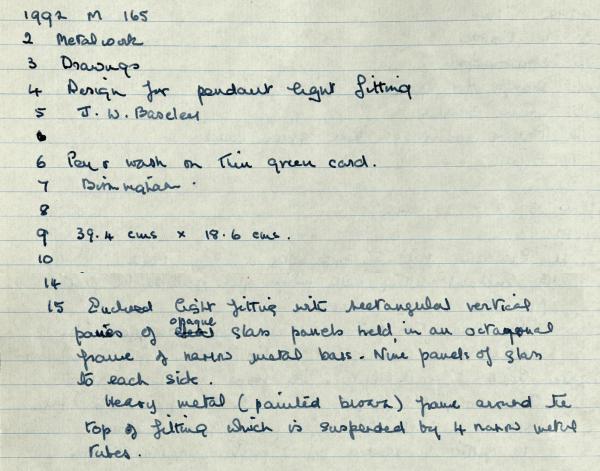 1992 M 165
2 Metalwork
3 Drawings
4 Design for pendant light fitting
5 J. W.
6
6 Pen & wash on thin green card.
7 Birmingham.
8
9 39.4 cms × 18.6 cms.
10
14
15 Enclosed light fitting with rectangular vertical
of opaque glass panels held in an octagonal
frame of narrow metal bars. Nine panels of glass
to each side.
Heavy metal (painted brown) frame around the
top of fitting which is suspended by 4 narrow metal
tubes.